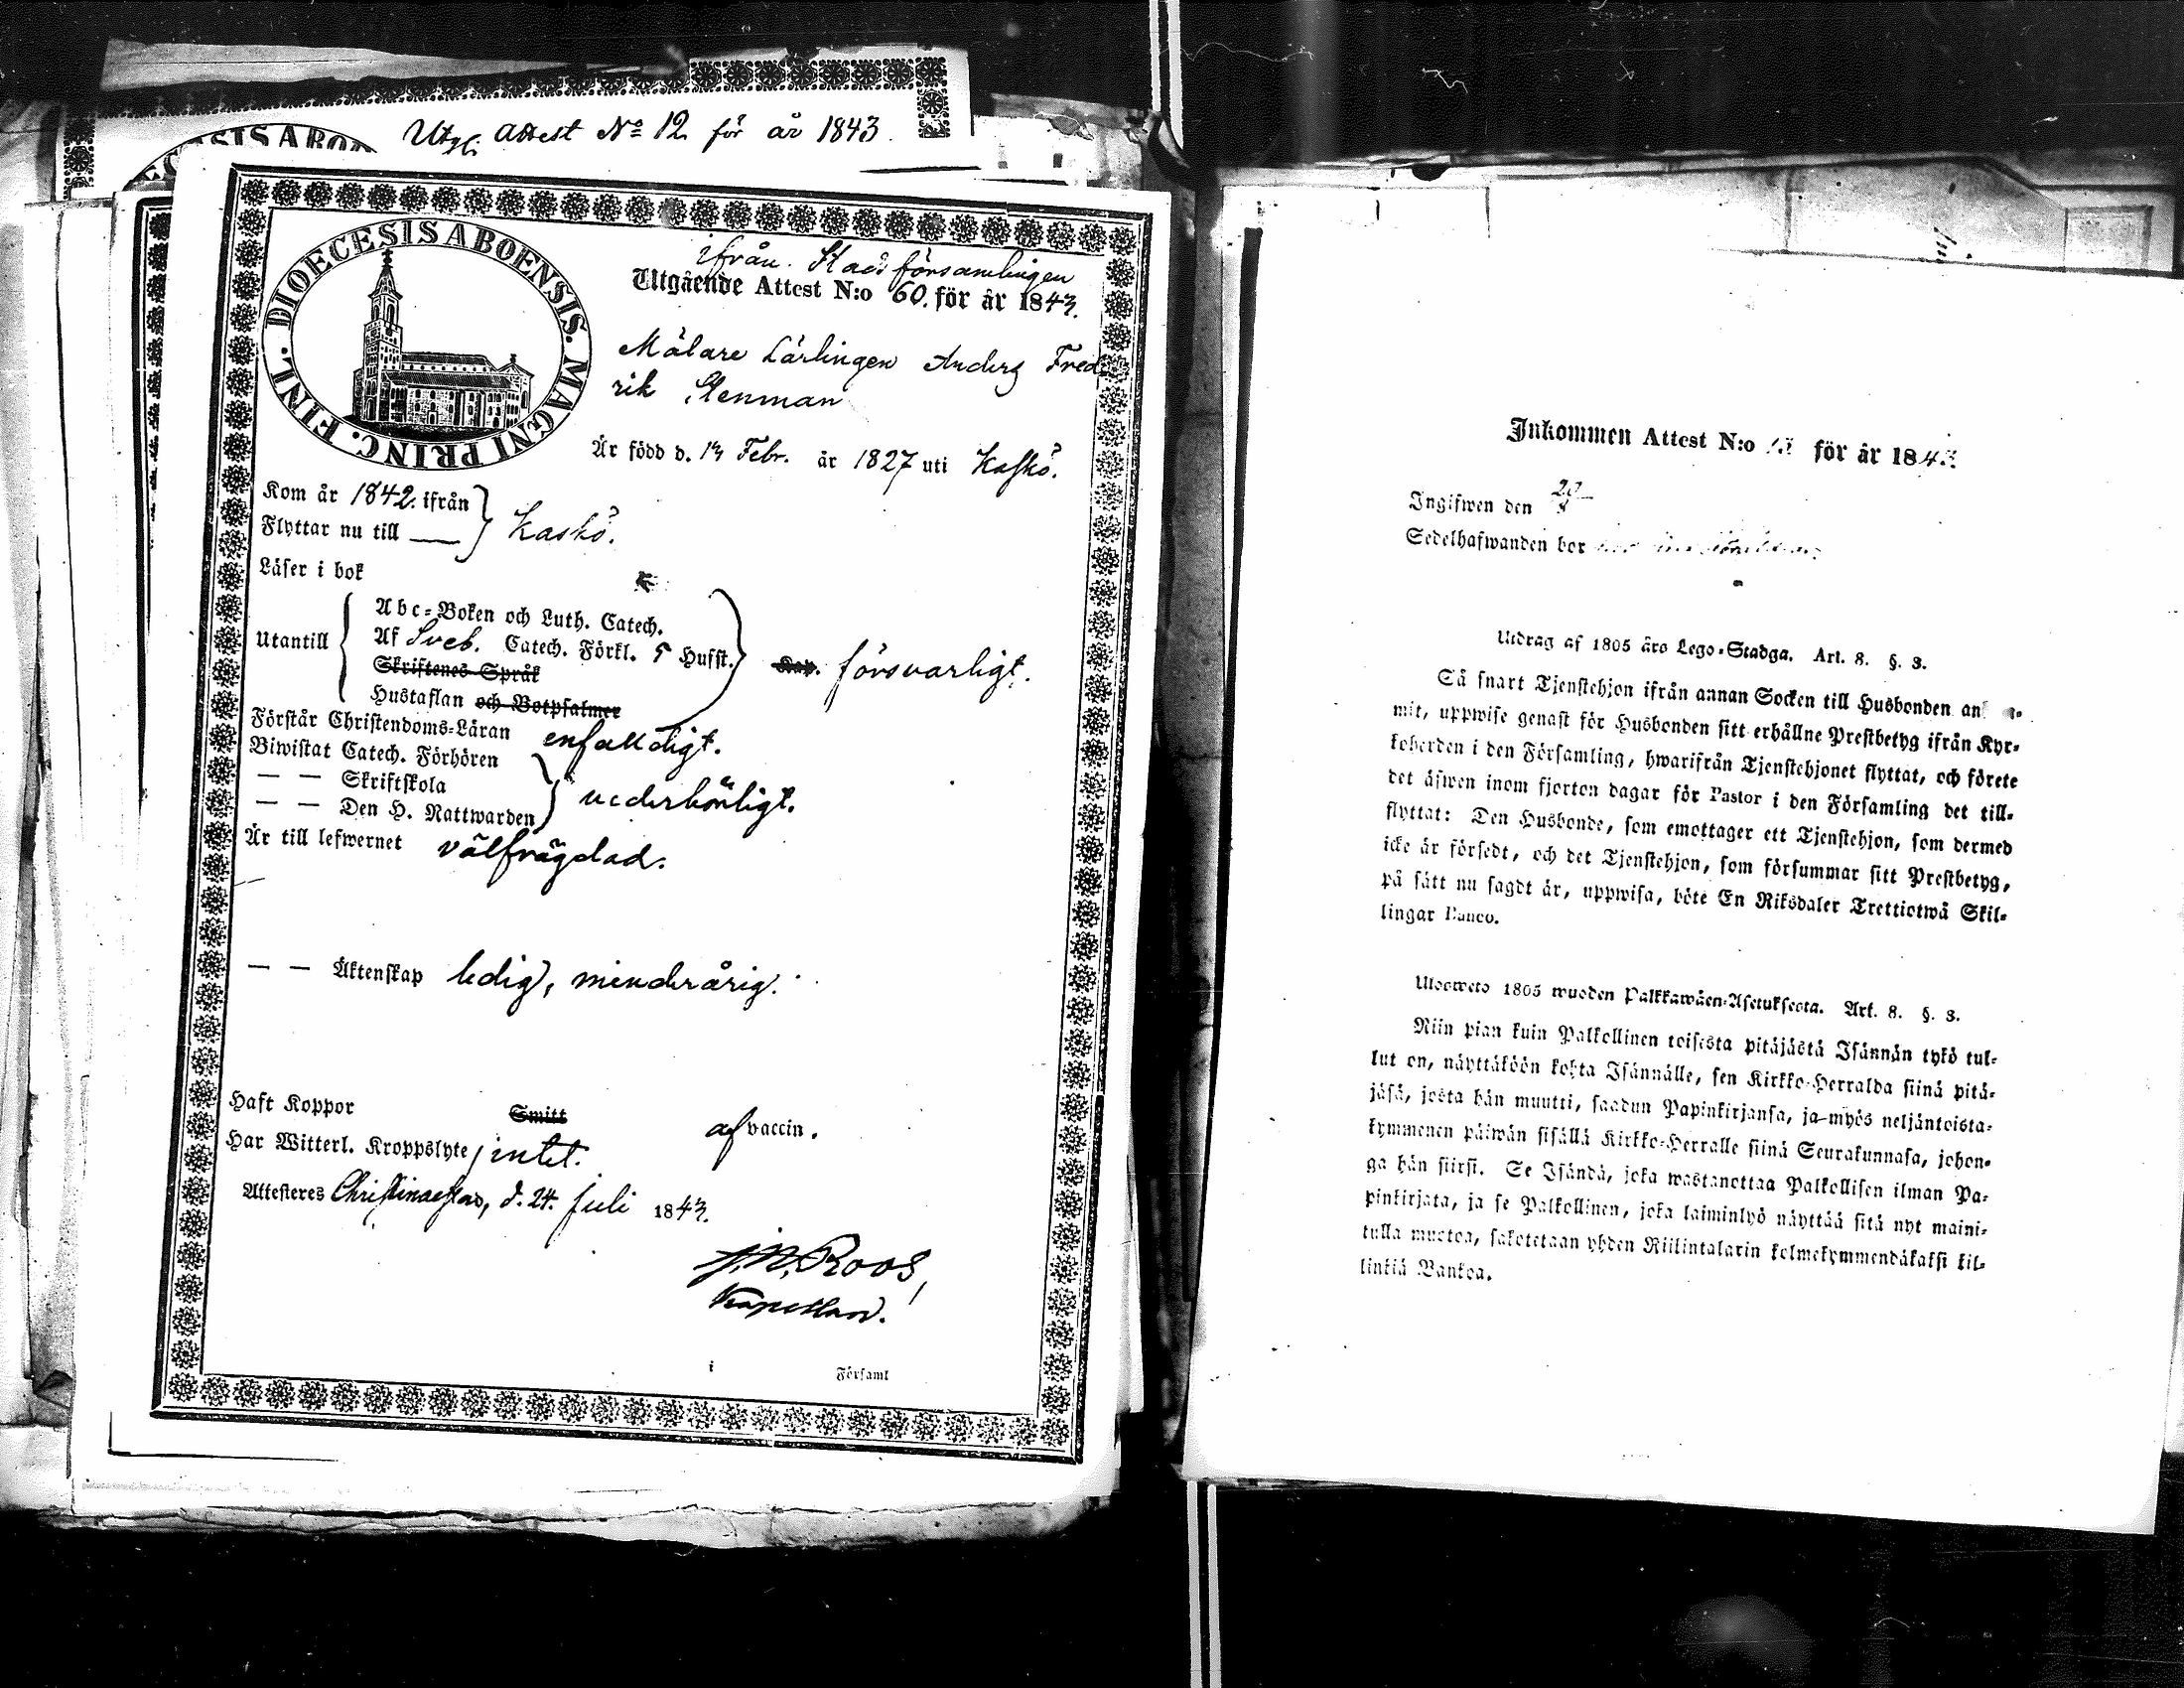 Utg: Attest No 12 för år 1843.
DIOECESIS ABOENSIS. MAGNI PRINC. FINL.
ifrån Stadsförsamlingen
Utgående Attest N:o 60. för år 1843.
Målare Lärlingen Anders Fred-
rik Stenman
Är född d. 13 Febr. år 1827 uti Kaskö.
Kom år 1842. ifrån
Flyttar nu till — Kaskö.
Läser i bok
Utantill
Abc-Boken och Luth. Catech.
Af Sveb. Catech. Förkl. 5 Hufst.
Skriftenes Språk
Hustaflan och Botpsalmer
Kap. försvarligt.
Förstår Christendoms-Läran enfalldigt.
Biwistat Catech. Förhören
— — Skriftskola
— — Den H. Nattwarden
vederbörligt.
Är till lefwernet välfrägdad.
— — Äktenskap ledig, minderårig.
Haft Koppor Smitt af vaccin.
Har Witterl. Kroppslyte intet.
Attesteres Christinaestad, d. 24. Juli 1843.
J. N. Roos,
Kapellan.
i Församl
Inkommen Attest N:o för år 1843.
Ingifwen den
Sedelhafwanden bor
Utdrag af 1805 års Lego-Stadga. Art. 8. §. 3.
Så snart Tjenstehjon ifrån annan Socken till Husbonden
mit, uppwise genast för Husbonden sitt erhållne Prestbetyg ifrån Kyr-
koherden i den Församling, hwarifrån Tjenstehjonet flyttat, och förete
det äfwen inom fjorton dagar för Pastor i den Församling det till-
flyttat: Den Husbonde, som emottager ett Tjenstehjon, som dermed
icke är försedt, och det Tjenstehjon, som försummar sitt Prestbetyg,
på sätt nu sagdt är, uppwisa, böte En Riksdaler Trettiotwå Skil-
lingar Banco.
Ulosweto 1805 wuoden Palkkawäen-Asetuksesta. Art. 8. §. 3.
Niin pian kuin Palkollinen toisesta pitäjästä Isännän tykö tul-
lut on, näyttäköön kohta Isännälle, sen Kirkko-Herralda siinä pitä-
jäsä, josta hän muutti, saadun Papinkirjansa, ja myös neljäntoista-
kymmenen päiwän sisällä Kirkko-Herralle siinä Seurakunnasa, johon-
ga hän siirsi. Se Isändä, joka wastanottaa Palkollisen ilman Pa-
pinkirjata, ja se Palkollinen, joka laiminlyö näyttää sitä nyt maini-
tulla muotoa, sakotetaan yhden Riilintalarin kolmekymmendäkaksi kil-
linkiä Bankoa.